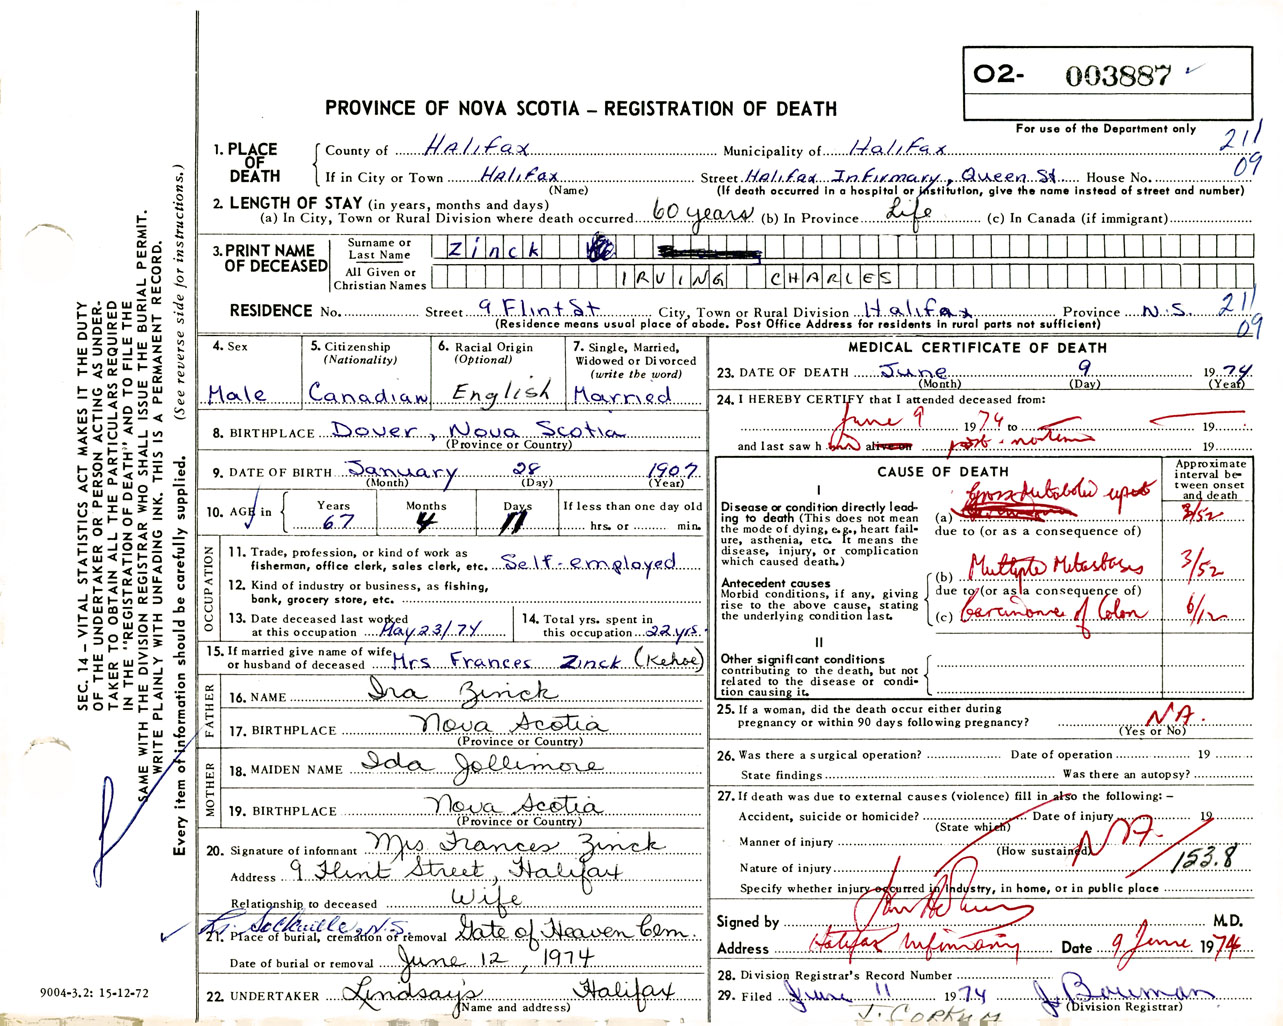 O2- 003887
PROVINCE OF NOVA SCOTIA – REGISTRATION OF DEATH
For use of the Department only
211
09
1. PLACE OF DEATH
County of Halifax Municipality of Halifax
If in City or Town Halifax Street Halifax Infirmary, Queen St. House No.
(Name) (If death occurred in a hospital or institution, give the name instead of street and number)
2. LENGTH OF STAY (in years, months and days)
(a) In City, Town or Rural Division where death occurred 60 years (b) In Province Life (c) In Canada (if immigrant)
3. PRINT NAME OF DECEASED
Surname or Last Name Zinck
All Given or Christian Names IRVING CHARLES
RESIDENCE No. Street 9 Flint St City, Town or Rural Division Halifax Province N.S.
211
09
(Residence means usual place of abode. Post Office Address for residents in rural parts not sufficient)
4. Sex
Male
5. Citizenship
(Nationality)
Canadian
6. Racial Origin
(Optional)
English
7. Single, Married, Widowed or Divorced
(write the word)
Married
8. BIRTHPLACE Dover, Nova Scotia
(Province or Country)
9. DATE OF BIRTH January 28 1907
(Month) (Day) (Year)
10. AGE in
Years Months Days If less than one day old
67 4 11 hrs. or min.
OCCUPATION
11. Trade, profession, or kind of work as
fisherman, office clerk, sales clerk, etc. Self-employed
12. Kind of industry or business, as fishing,
bank, grocery store, etc.
13. Date deceased last worked
at this occupation May 23/74
14. Total yrs. spent in
this occupation 22 yrs.
15. If married give name of wife
or husband of deceased Mrs Frances Zinck (Kehoe)
FATHER
16. NAME Ira Zinck
17. BIRTHPLACE Nova Scotia
(Province or Country)
MOTHER
18. MAIDEN NAME Ida Jollimore
19. BIRTHPLACE Nova Scotia
(Province or Country)
20. Signature of informant Mrs Frances Zinck
Address 9 Flint Street, Halifax
Relationship to deceased Wife
Sackville, N.S.
21. Place of burial, cremation or removal Gate of Heaven Cem.
Date of burial or removal June 12, 1974
22. UNDERTAKER Lindsay's Halifax
(Name and address)
MEDICAL CERTIFICATE OF DEATH
23. DATE OF DEATH June 9 1974
(Month) (Day) (Year)
24. I HEREBY CERTIFY that I attended deceased from:
June 9 1974 to 19
and last saw h alive on post-mortem 19
CAUSE OF DEATH
Approximate interval between onset and death
I
Disease or condition directly leading to death (This does not mean the mode of dying, e.g., heart failure, asthenia, etc. It means the disease, injury, or complication which caused death.)
(a) Gross Metabolic upset 3/52
due to (or as a consequence of)
Antecedent causes
Morbid conditions, if any, giving rise to the above cause, stating the underlying condition last.
(b) Multiple Metastases 3/52
due to (or as a consequence of)
(c) Carcinoma of Colon 6/12
II
Other significant conditions contributing to the death, but not related to the disease or condition causing it.
25. If a woman, did the death occur either during
pregnancy or within 90 days following pregnancy? NA.
(Yes or No)
26. Was there a surgical operation? Date of operation 19
State findings Was there an autopsy?
27. If death was due to external causes (violence) fill in also the following: –
Accident, suicide or homicide? Date of injury 19
(State which)
Manner of injury NA.
(How sustained)
Nature of injury 153.8
Specify whether injury occurred in industry, in home, or in public place
Signed by M.D.
Address Halifax Infirmary Date 9 June 1974
28. Division Registrar's Record Number
29. Filed June 11 1974 J. Bowman
(Division Registrar)
J. CORKUM
SEC. 14 – VITAL STATISTICS ACT MAKES IT THE DUTY
OF THE UNDERTAKER OR PERSON ACTING AS UNDER-
TAKER TO OBTAIN ALL THE PARTICULARS REQUIRED
IN THE "REGISTRATION OF DEATH" AND TO FILE THE
SAME WITH THE DIVISION REGISTRAR WHO SHALL ISSUE THE BURIAL PERMIT.
WRITE PLAINLY WITH UNFADING INK. THIS IS A PERMANENT RECORD.
Every item of information should be carefully supplied. (See reverse side for instructions.)
9004-3.2: 15-12-72